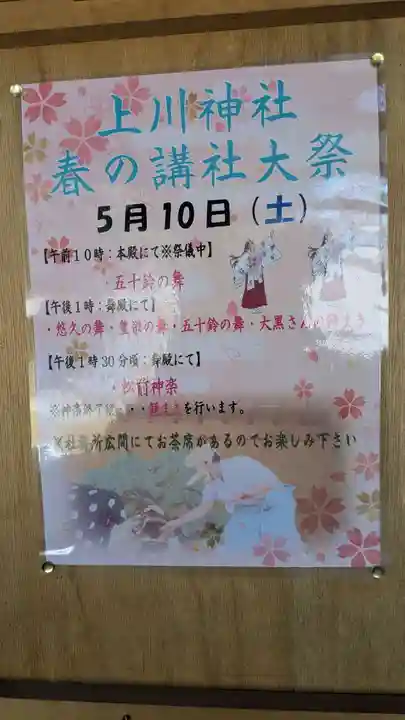 上川神社
春の講社大祭
5月10日(土)
【午前10時:本殿にて※祭儀中】
・五十鈴の舞
【午後1時:舞殿にて】
・悠久の舞・豊栄の舞・五十鈴の舞・大黒さんの
【午後1時30分頃:舞殿にて】
・松前神楽
※神楽終了後・・・餅まきを行います。
※社務所広間にてお茶席があるのでお楽しみ下さい